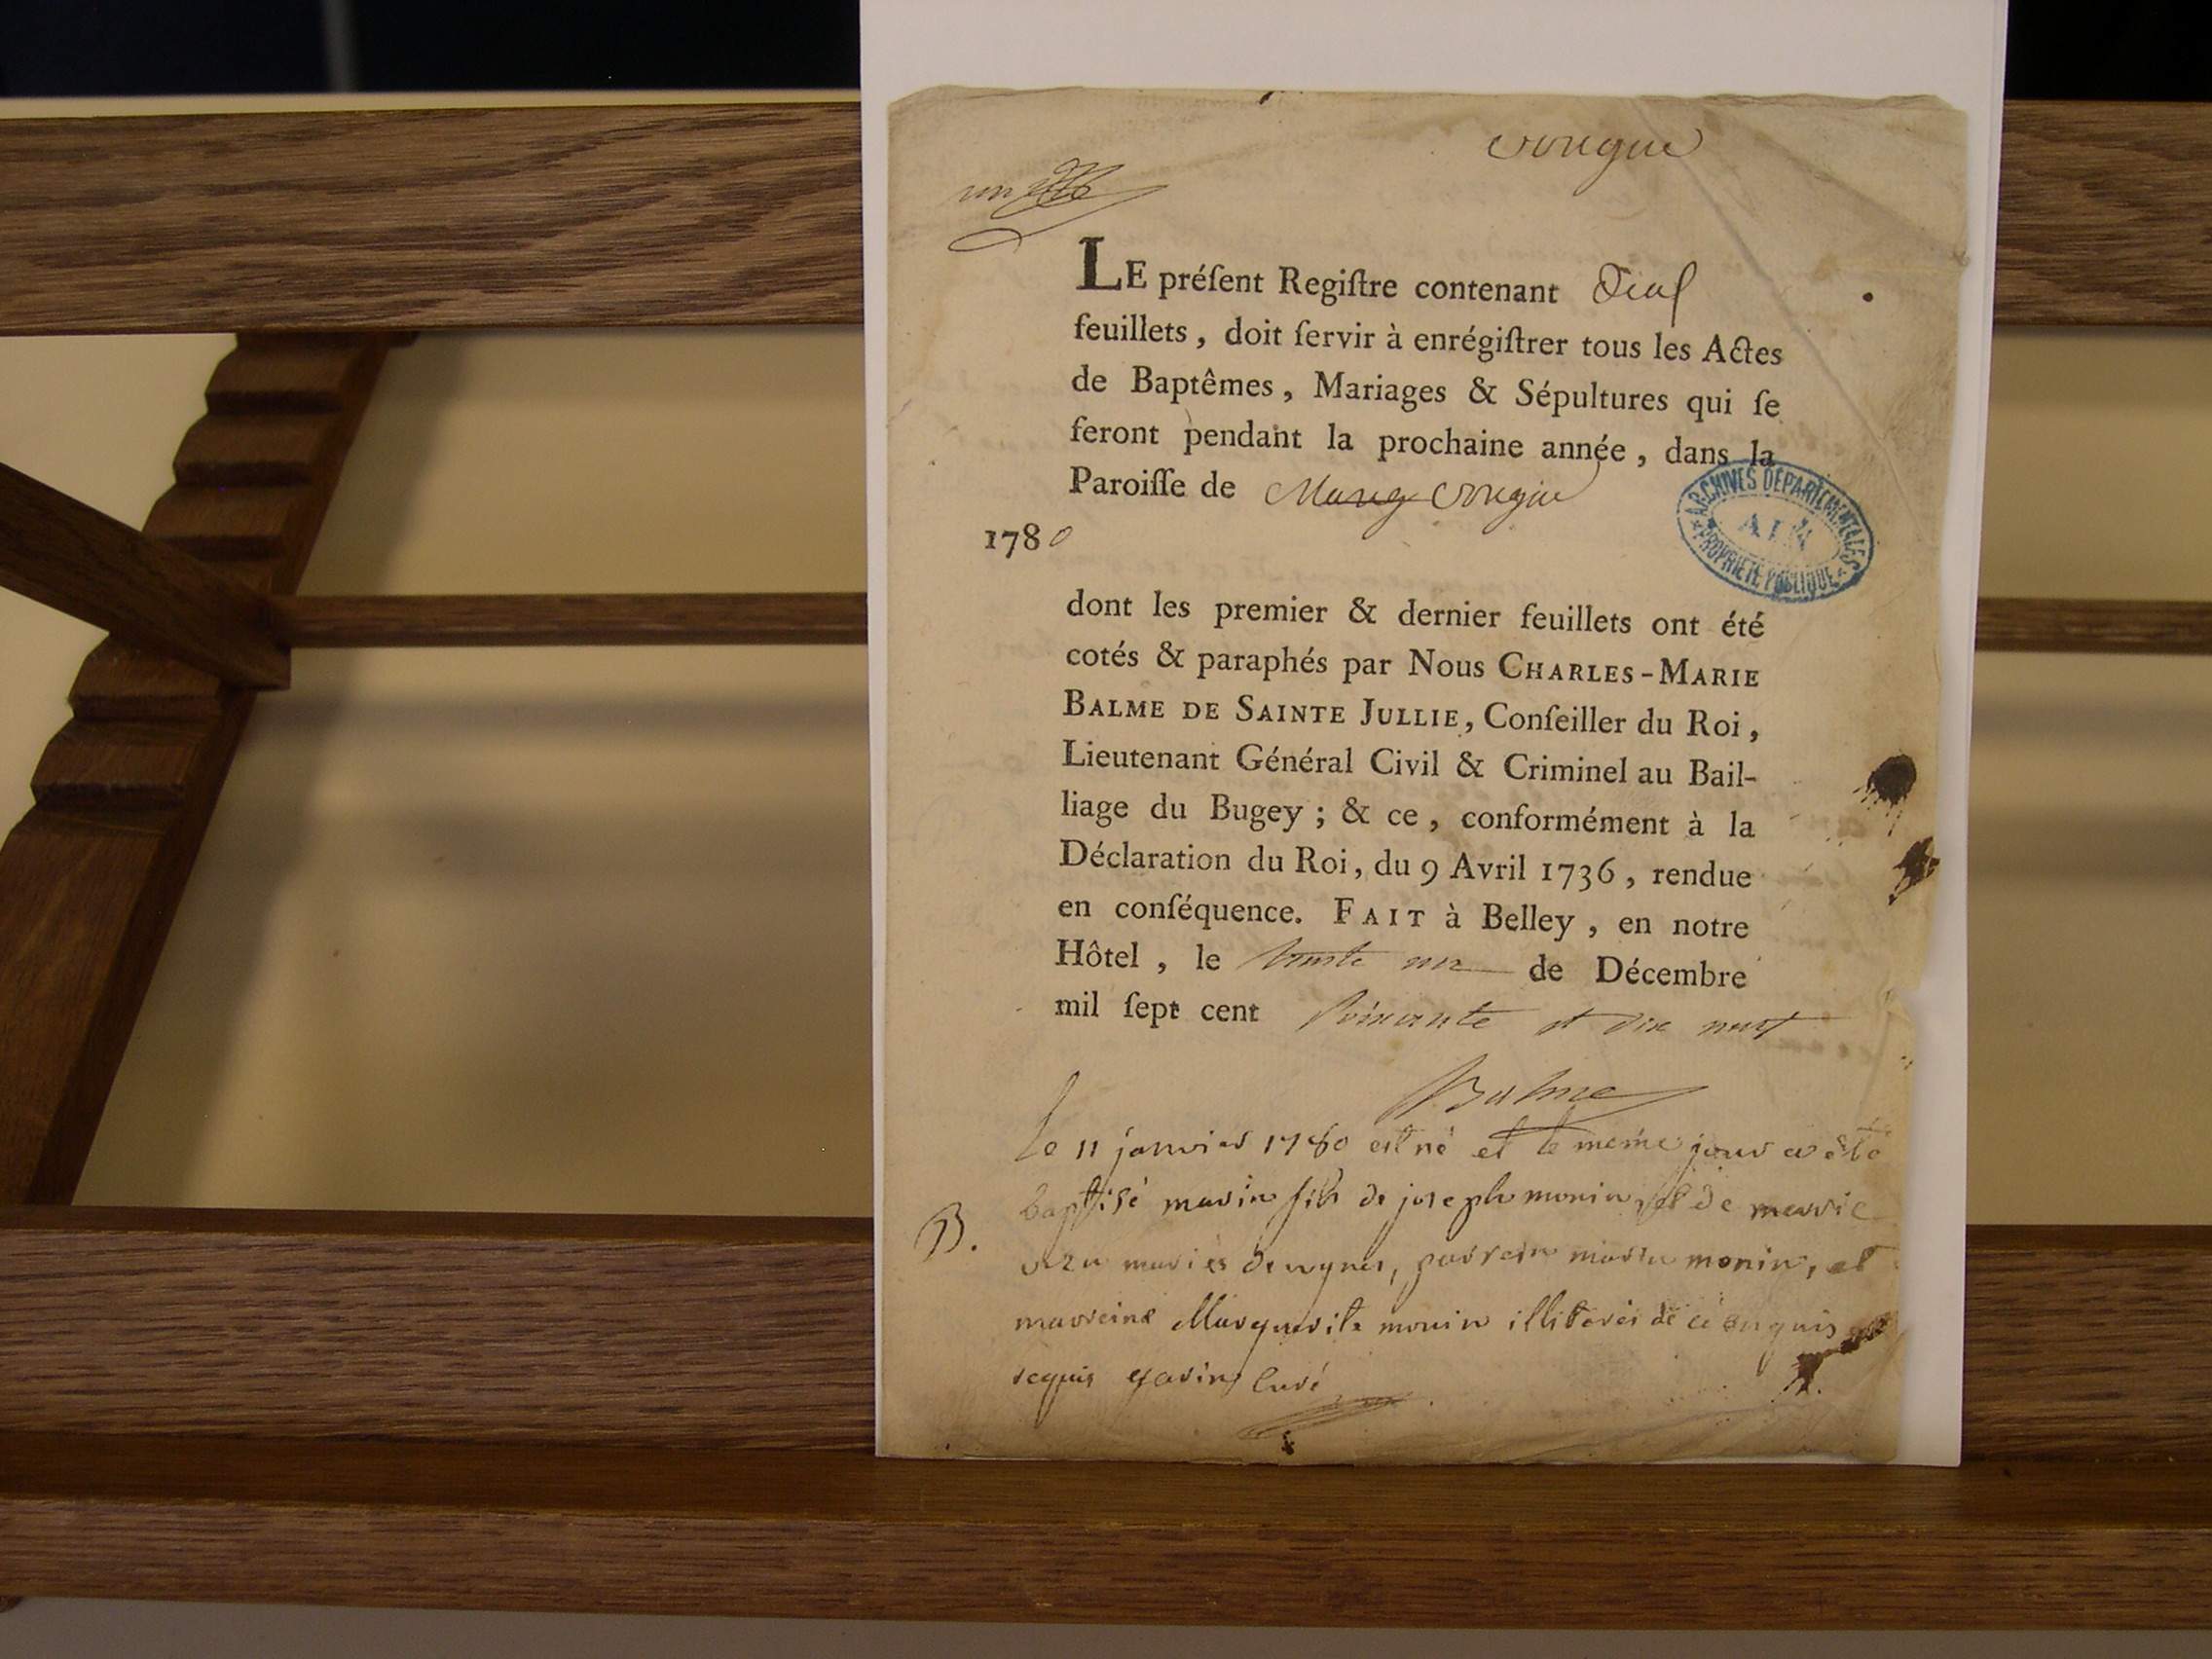 un
LE préſent Regiſtre contenant
feuillets, doit ſervir à enrégiſtrer tous les Actes
de Baptêmes, Mariages & Sépultures qui ſe
feront pendant la prochaine année, dans la
Paroiſſe de
1780
ARCHIVES DÉPARTEMENTALES
AIN
PROPRIÉTÉ PUBLIQUE
dont les premier & dernier feuillets ont été
cotés & paraphés par Nous CHARLES-MARIE
BALME DE SAINTE JULLIE, Conſeiller du Roi,
Lieutenant Général Civil & Criminel au Bail-
liage du Bugey; & ce, conformément à la
Déclaration du Roi, du 9 Avril 1736, rendue
en conſéquence. FAIT à Belley, en notre
Hôtel, le trente un de Décembre
mil ſept cent soixante et dix neuf
Balme
Le 11 janvier 1780 est né et le meme jour a été
B.
baptisé marin fils de joseph monin et de marie
mariés parrein marin monin, et
marreine Marguerite monin illiterés de ce enquis
requis curé